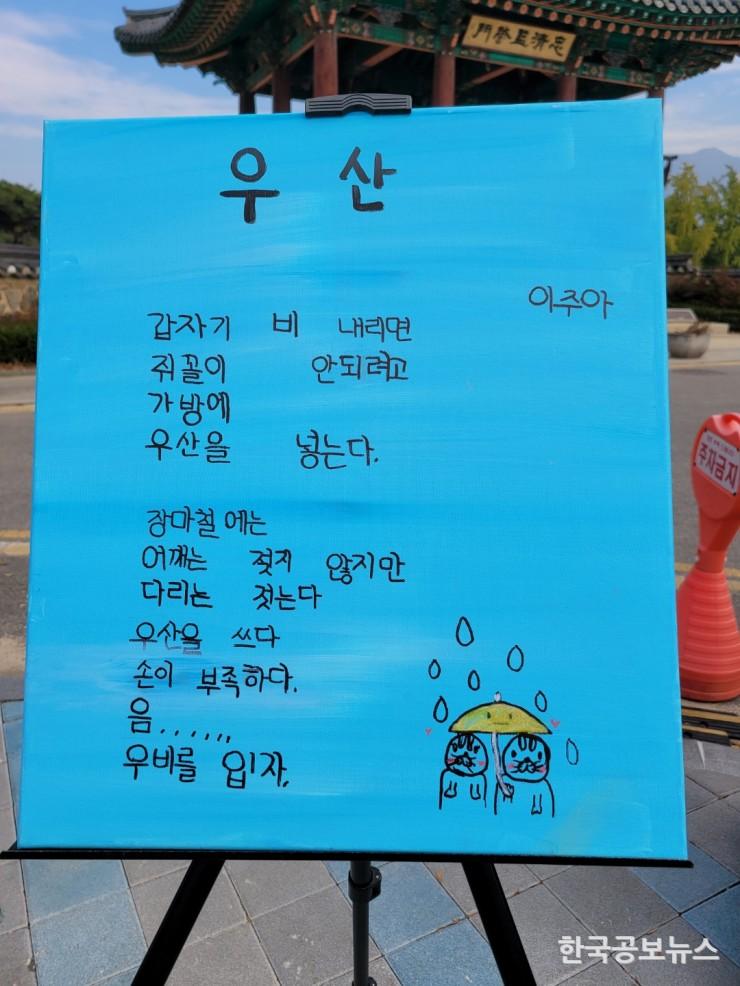 忠清監營門
우 산
이주아
갑자기 비 내리면
쥐꼴이 안되려고
가방에
우산을 넣는다.
장마철에는
어깨는 젖지 않지만
다리는 젖는다
우산을 쓰다
손이 부족하다.
음......
우비를 입자.
주차금지
한국공보뉴스